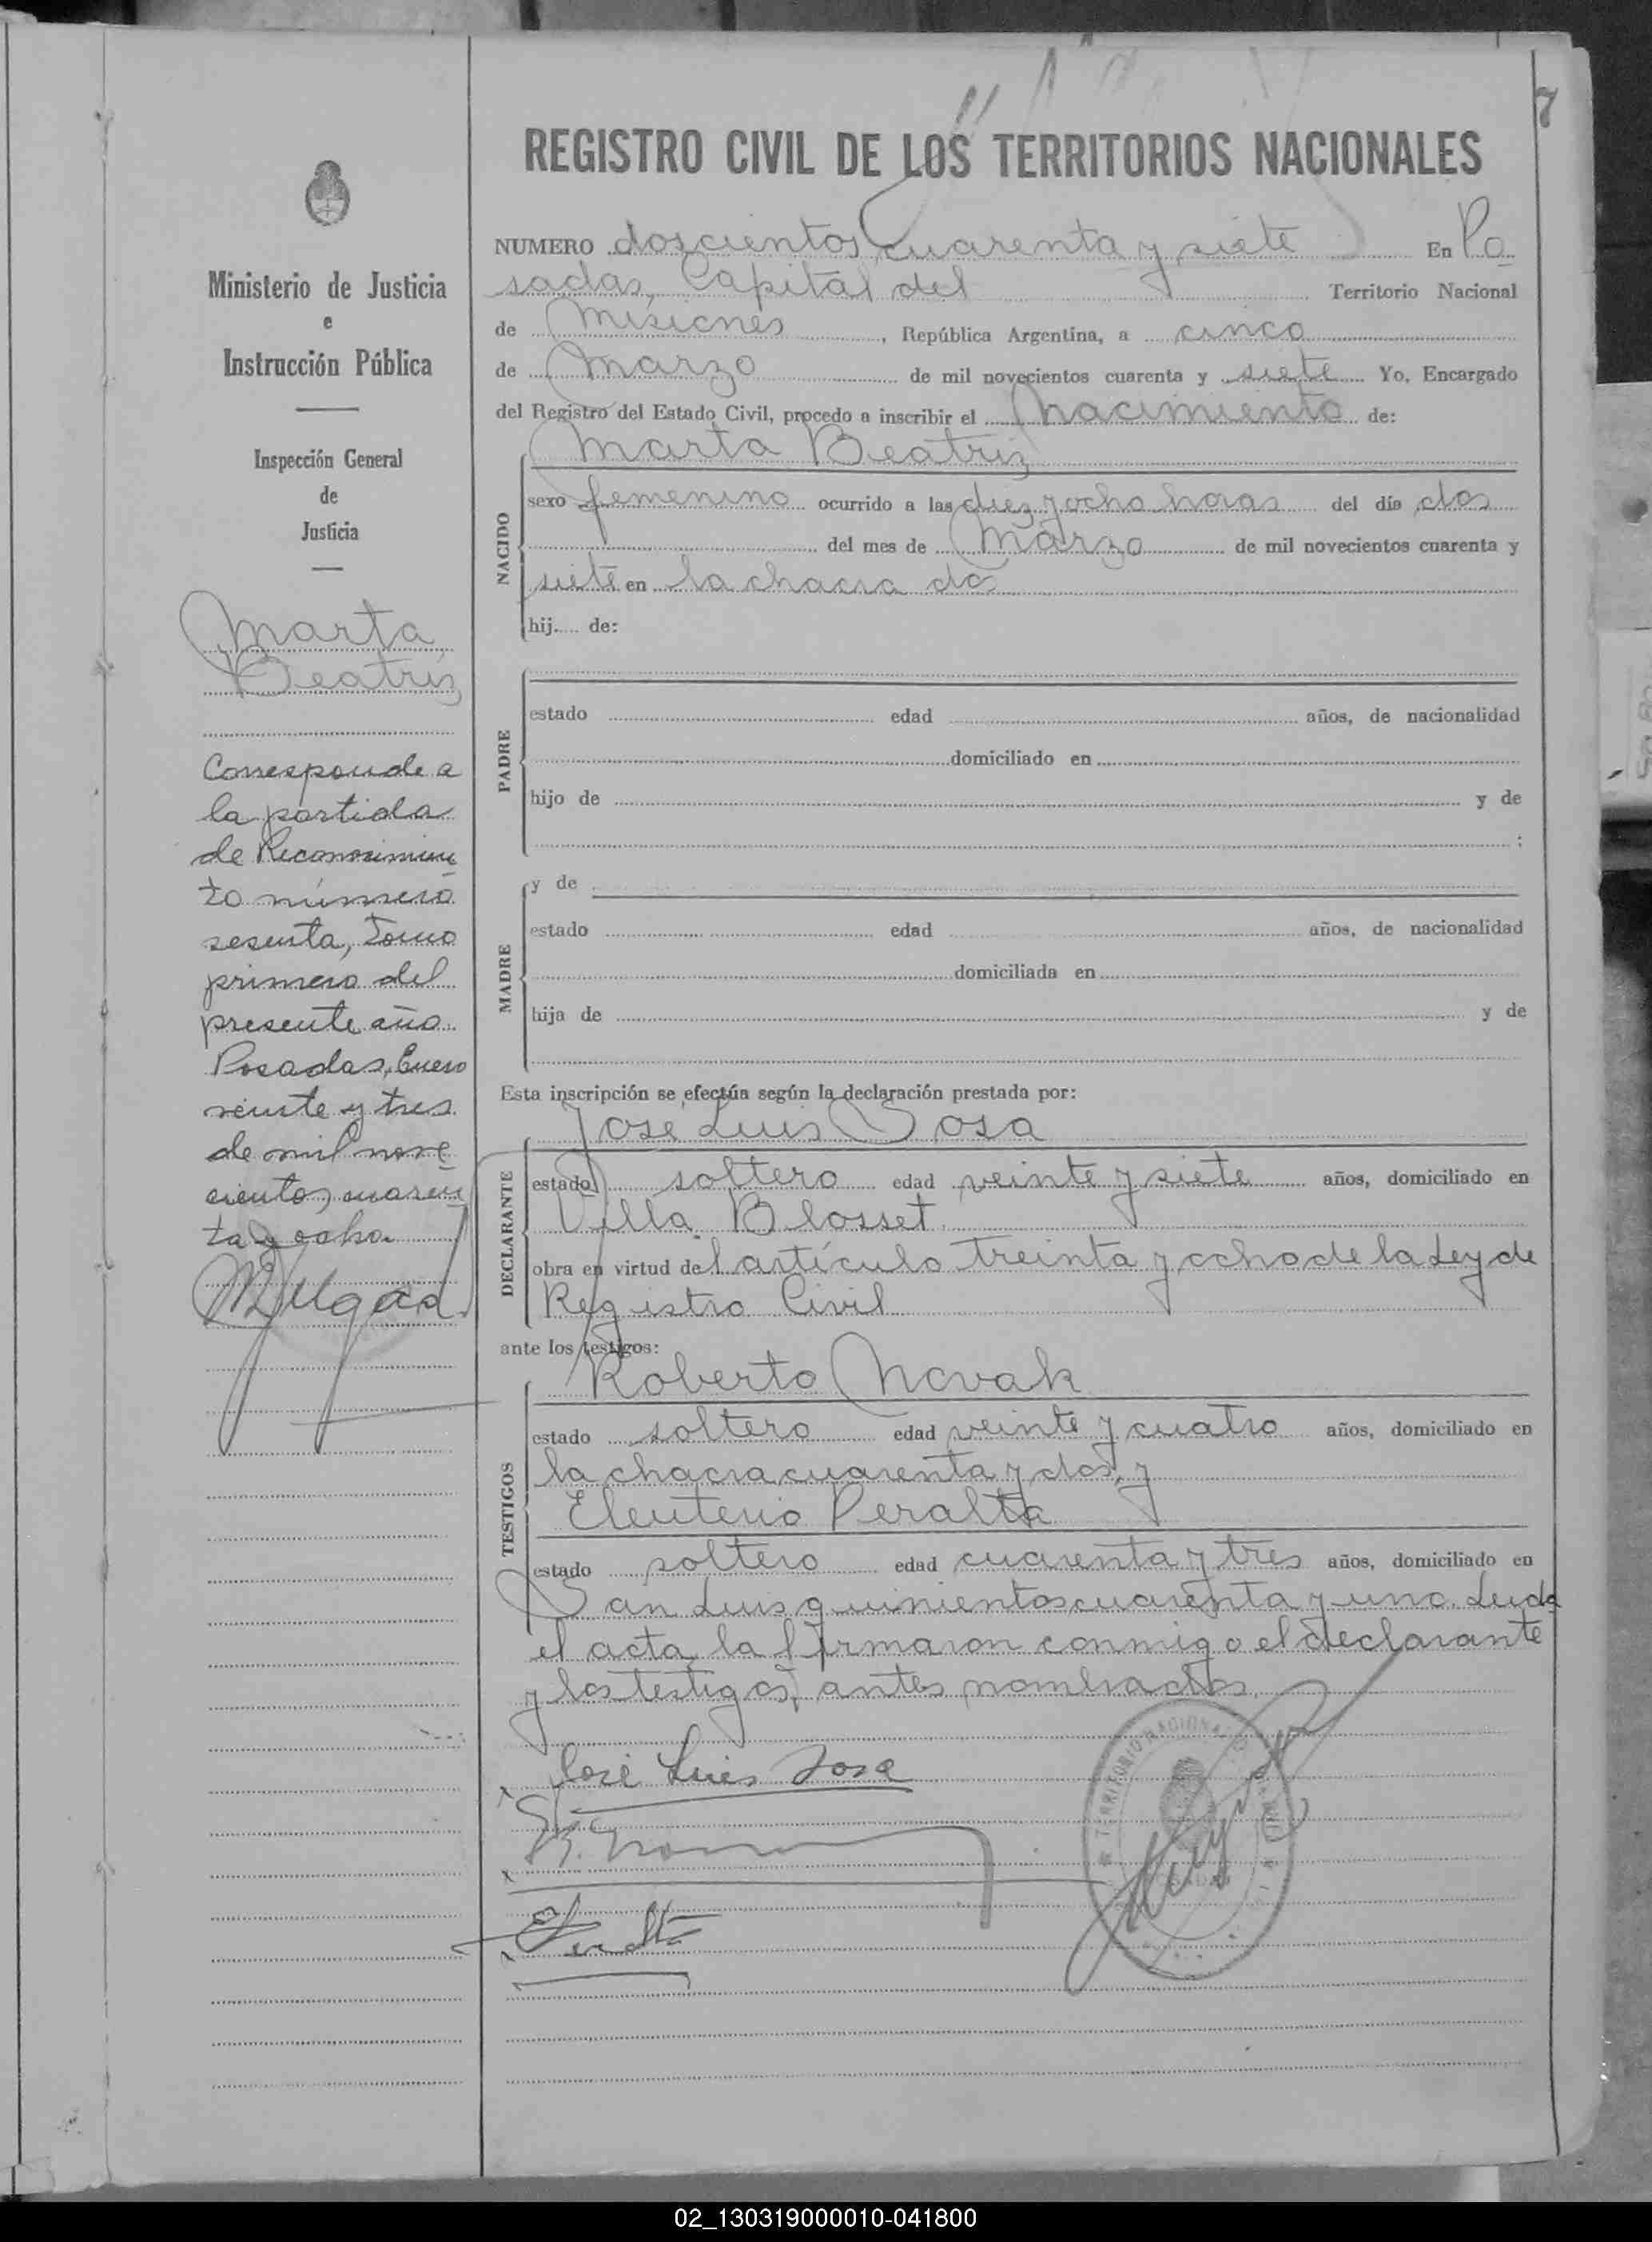 7
REGISTRO CIVIL DE LOS TERRITORIOS NACIONALES
NUMERO doscientos cuarenta y siete En Po
sadas, Capital del Territorio Nacional
de Misiones, República Argentina, a cinco
de Marzo de mil novecientos cuarenta y siete Yo, Encargado
del Registro del Estado Civil, procedo a inscribir el Nacimiento de:
NACIDO
Marta Beatriz
sexo femenino ocurrido a las diez y ocho horas del día dos
del mes de Marzo de mil novecientos cuarenta y
siete en la chacra dos
hij.... de:
PADRE
estado edad años, de nacionalidad
domiciliado en
hijo de y de
:
MADRE
y de
estado edad años, de nacionalidad
domiciliada en
hija de y de
Esta inscripción se efectúa según la declaración prestada por:
DECLARANTE
José Luis Sosa
estado soltero edad veinte y siete años, domiciliado en
Villa Blosset
obra en virtud del artículo treinta y ocho de la Ley de
Registro Civil
ante los testigos:
TESTIGOS
Roberto Novak
estado soltero edad veinte y cuatro años, domiciliado en
la chacra cuarenta y dos, y
Eleuterio Peralta
estado soltero edad cuarenta y tres años, domiciliado en
San Luis quinientos cuarenta y uno. Leida
el acta, la firmaron conmigo el declarante
y los testigos, antes nombrados.
José Luis Sosa
TERRITORIO NACIONAL
Ministerio de Justicia
e
Instrucción Pública
Inspección General
de
Justicia
Marta
Beatriz
Corresponde a
la partida
de Reconocimien
to número
sesenta, Tomo
primero del
presente año.
Posadas, Enero
veinte y tres
de mil nove
cientos cuaren
ta y ocho.
02_130319000010-041800